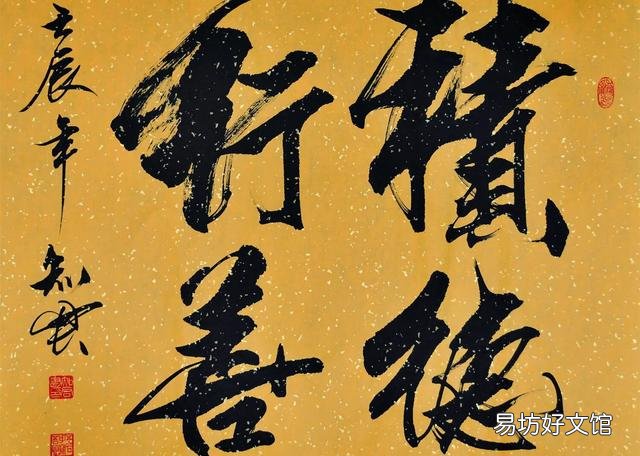 積德
行善
壬辰年 知
易坊好文馆